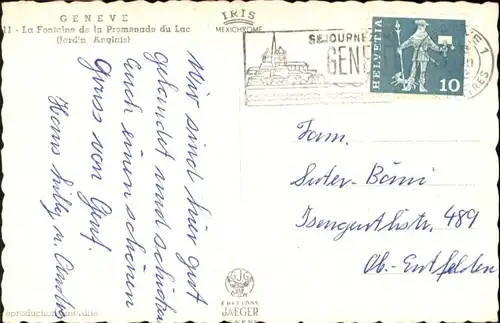 GENEVE
11 - La Fontaine de la Promenade du Lac
(Jardin Anglais)
IRIS
MEXICHROME
SEJOURNEZ
GENE
HELVETIA
10
Wir sind hier gut
gelandet und schicken
auch einen schönen
Gruss von Genf.
Hans Willy u.
Fam.
Suter-Bänni
Isengurtlistr. 489
Ob. Entfelden
EDITIONS
JAEGER
GENEVE